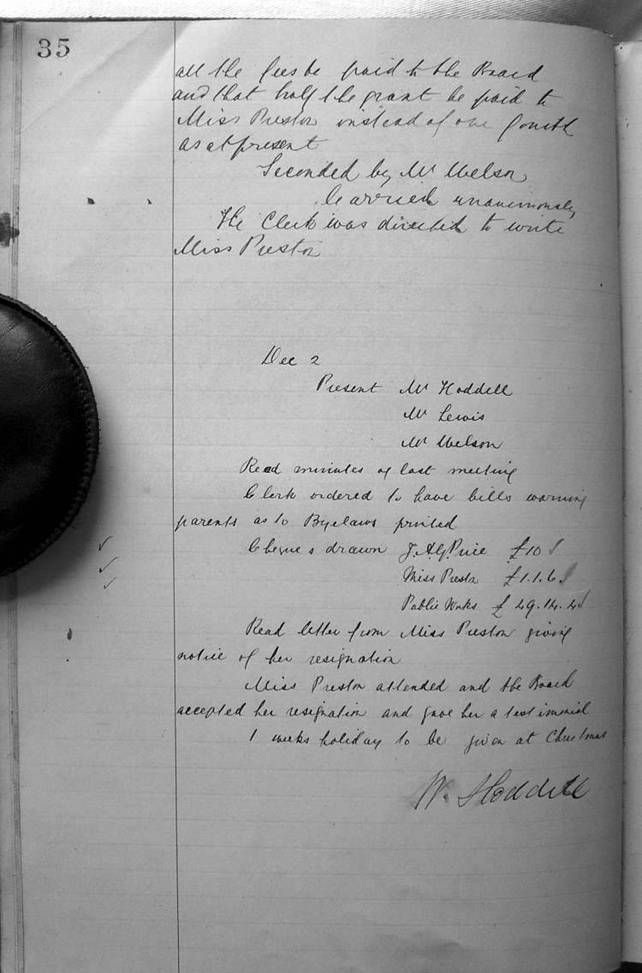 35
all the fees be paid to the Board
and that half the grant be paid to
Miss Preston instead of one fourth
as at present
Seconded by Mr Welson
Carried unanimously
The Clerk was directed to write
Miss Preston
Dec 2
Present Mr Hoddell
Mr Lewis
Mr Welson
Read minutes of last meeting
Clerk ordered to have bills warning
parents as to Byelaws printed
Cheques drawn J.A.G. Price £10
Miss Preston £1.1.6
Public Works £29.14.2
Read letter from Miss Preston giving
notice of her resignation
Miss Preston attended and the Board
accepted her resignation and gave her a testimonial
1 weeks holiday to be given at Christmas
W. Hoddell